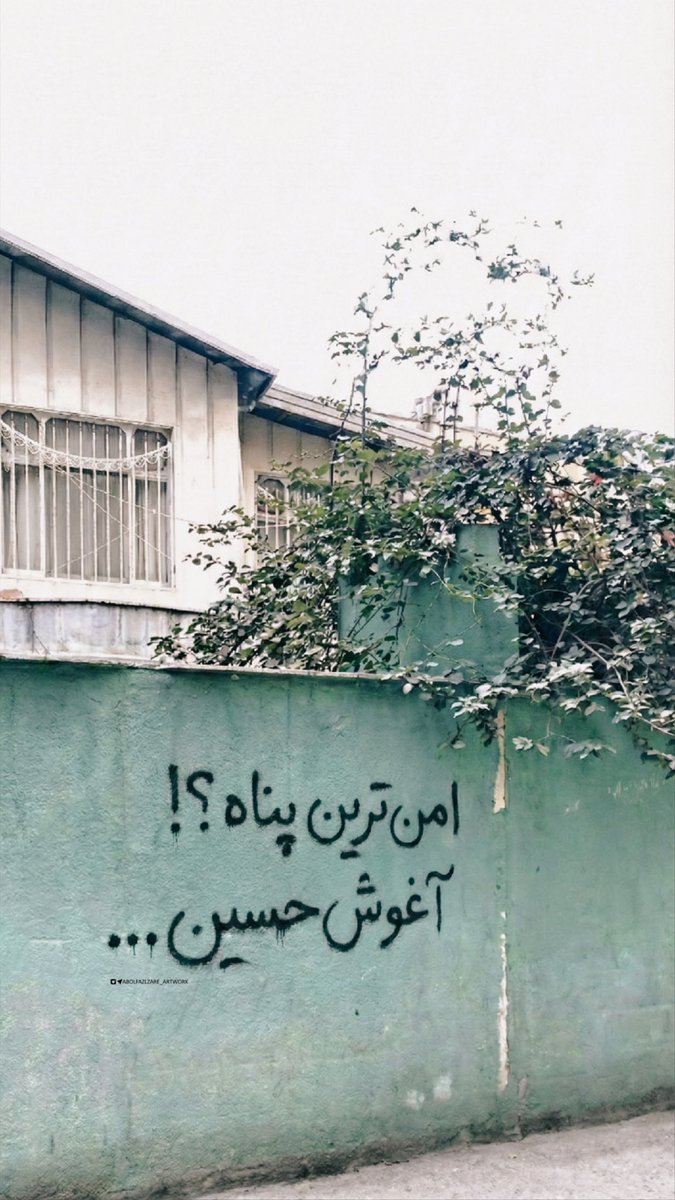 امن‌ترین پناه؟!
آغوش حسین...
ABOLFAZLZARE_ARTWORK